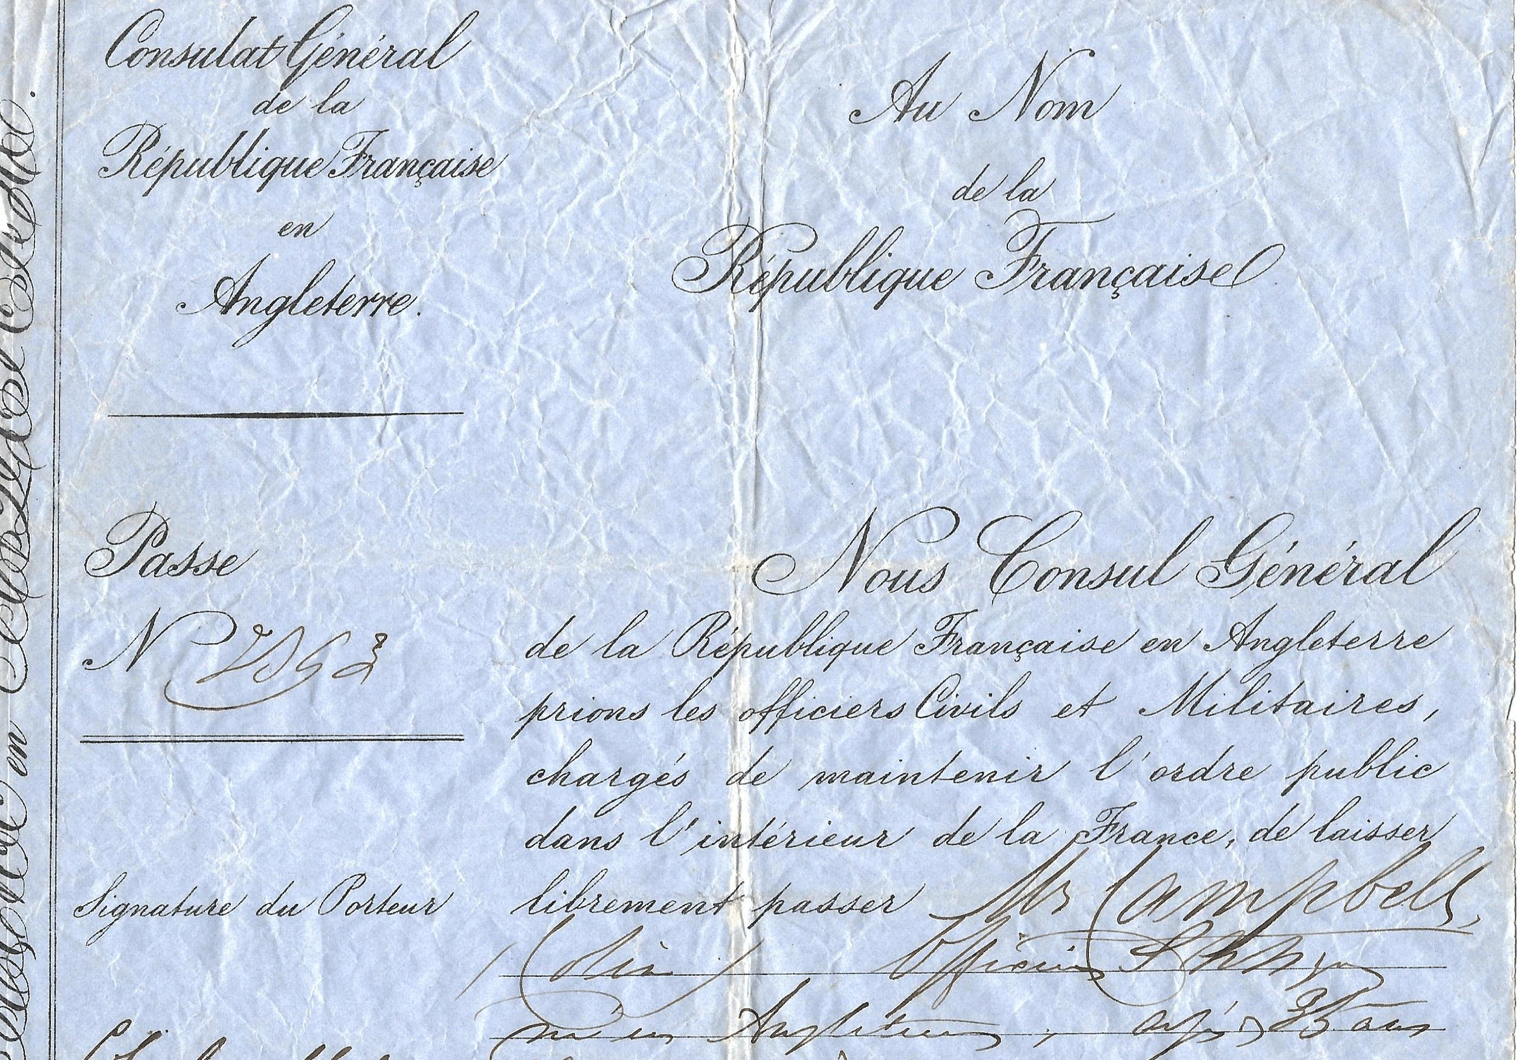 Consulat Général
de la
République Française
en
Angleterre.
Au Nom
de la
République Française
Passe
N
Signature du Porteur
Nous Consul Général
de la République Française en Angleterre
prions les officiers Civils et Militaires,
chargés de maintenir l'ordre public
dans l'intérieur de la France, de laisser
librement passer Mr Campbell,
(Colin) Officier
né en Angleterre, agé de 35 ans